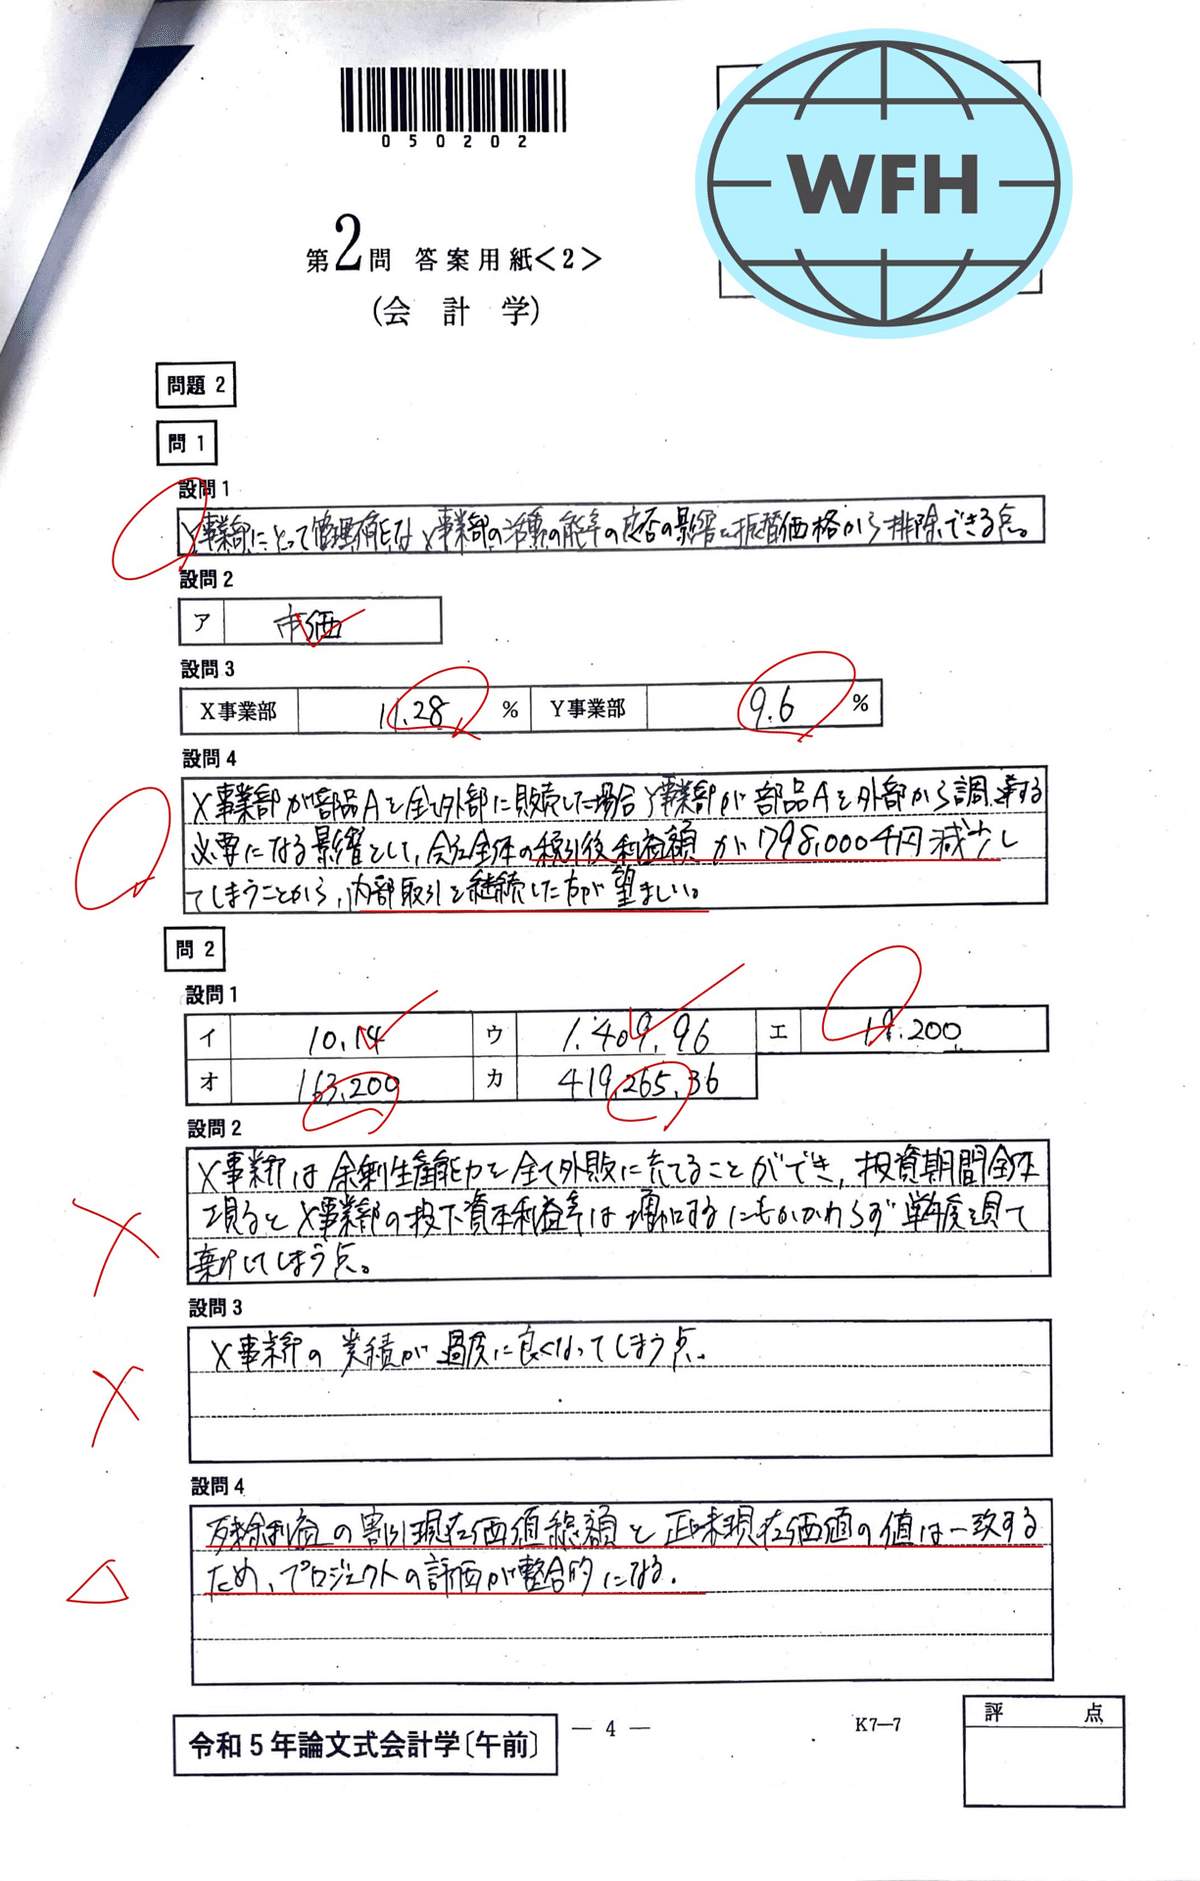 050202
WFH
第2問 答案用紙<2>
(会計学)
問題 2
問 1
設問1
Y事業部にとって管理不能なX事業部の活動の能率の良否の影響を振替価格から排除できる点。
設問2
ア 市価
設問3
X事業部 11.28 % Y事業部 9.6 %
設問4
X事業部が部品Aを全て外部に販売した場合Y事業部が部品Aを外部から調達する
必要になる影響として、会社全体の税引後利益額が798,000千円減少し
てしまうことから、内部取引を継続した方が望ましい。
問 2
設問1
イ 10.14 ウ 1,409.96 エ 19,200
オ 163,200 カ 419,265.36
設問2
X事業部は余剰生産能力を全て外販に充てることができ、投資期間全体
で見るとX事業部の投下資本利益率は増加するにもかかわらず単年度で見て
棄却してしまう点。
設問3
X事業部の業績が過度に良くなってしまう点。
設問4
残余利益の割引現在価値総額と正味現在価値の値は一致する
ため、プロジェクトの評価が整合的になる。
令和5年論文式会計学〔午前〕
— 4 —
K7—7
評 点